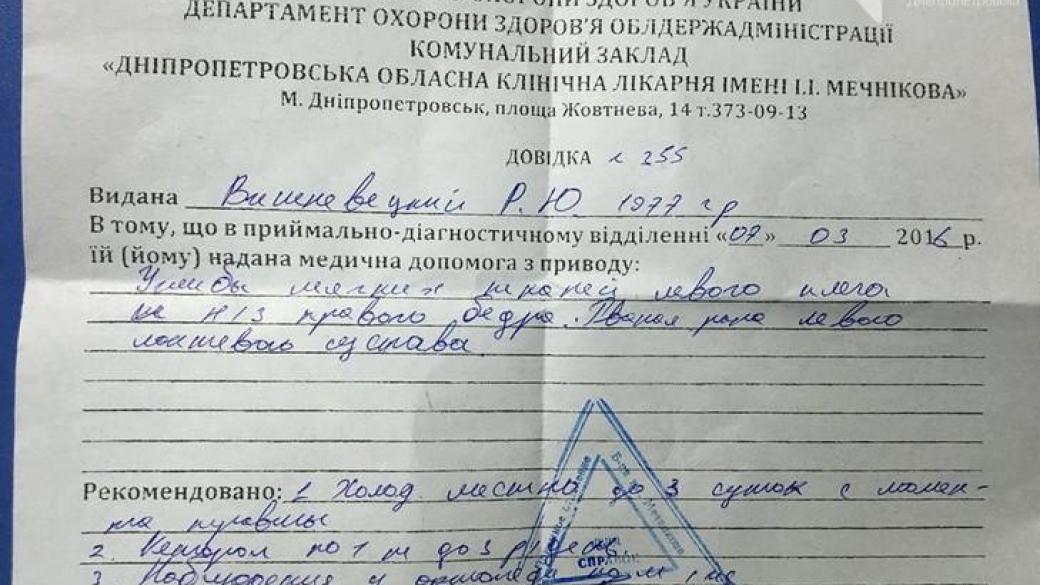 ОХОРОНИ ЗДОРОВ'Я УКРАЇНИ
Дніпропетровськ
ДЕПАРТАМЕНТ ОХОРОНИ ЗДОРОВ'Я ОБЛДЕРЖАДМІНІСТРАЦІЇ
КОМУНАЛЬНИЙ ЗАКЛАД
«ДНІПРОПЕТРОВСЬКА ОБЛАСНА КЛІНІЧНА ЛІКАРНЯ ІМЕНІ І.І. МЕЧНІКОВА»
М. Дніпропетровськ, площа Жовтнева, 14 т.373-09-13
ДОВІДКА 255
Видана Вишневецкий Р.Ю. 1977 гр
В тому, що в приймально-діагностичному відділенні «07» 03 2016 р.
їй (йому) надана медична допомога з приводу:
Ушибы мягких тканей левого плеча
н/з правого бедра. Рваная рана левого
локтевого сустава
Рекомендовано: 1 Холод местно до 3 суток с момен-
та травмы
2. Кеторол по 1 т до 3 р/день
СПРАВОК
3